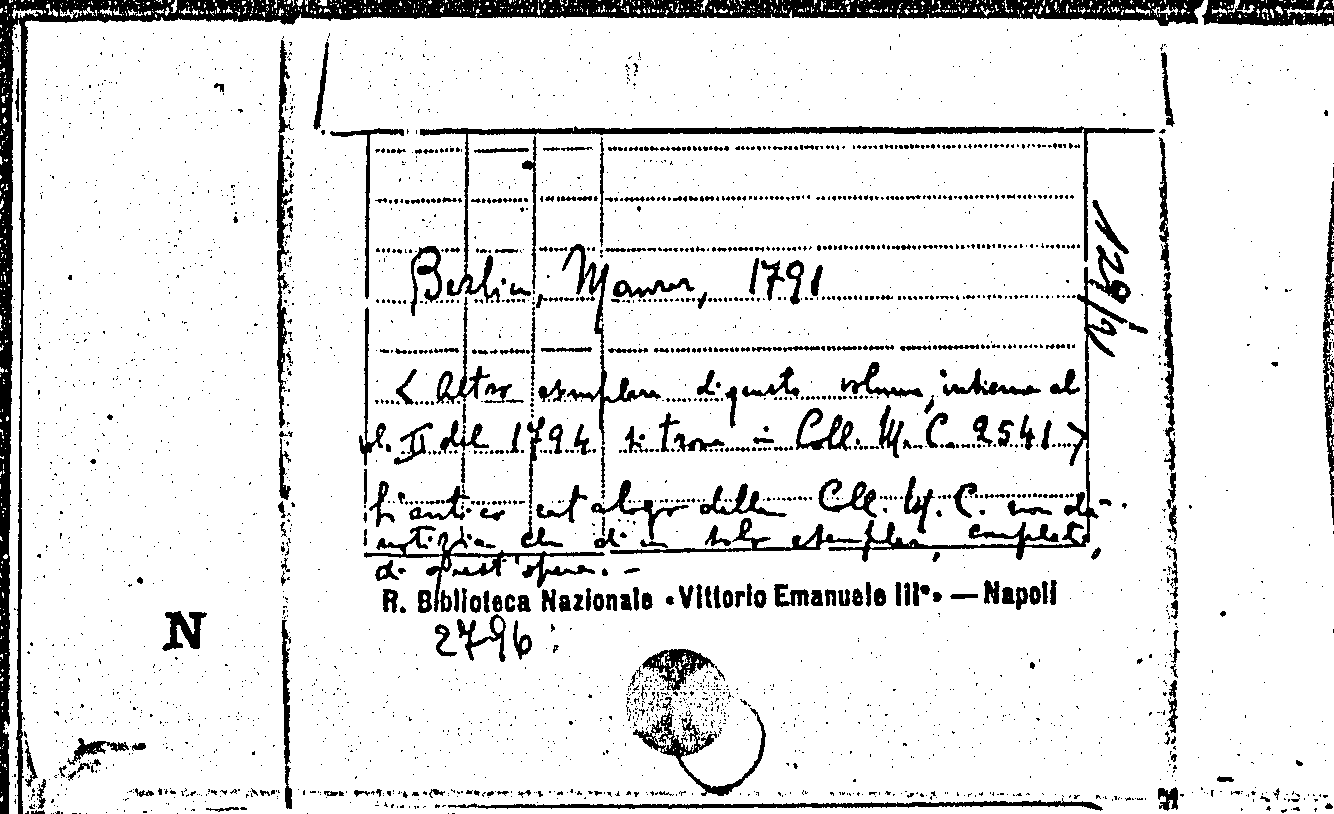 Berlin, Maurer, 1791
< Altro esemplare di questo volume, insieme al
vol. II del 1794 si trova in Coll. M. C. 2541 >
L'antico catalogo della Coll. M. C. non dà
notizia che di un solo esemplare, completo,
di quest'opera. -
R. Biblioteca Nazionale «Vittorio Emanuele III°» — Napoli
2796
N
129/91